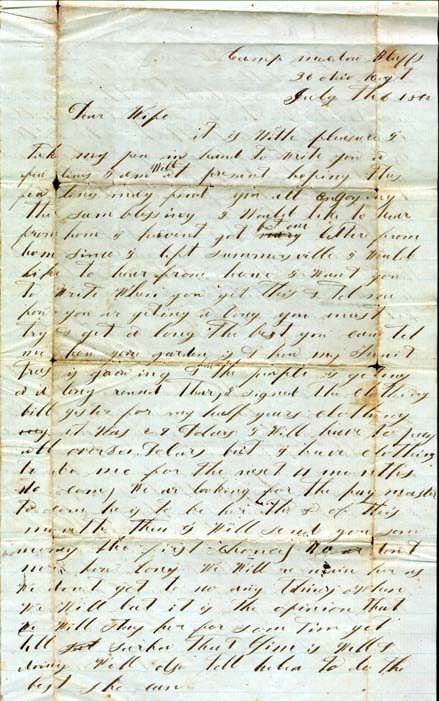 Camp meadow Bluffs
30 ohio Regt
July the 6 1862
Dear Wife
it is With pleasure I
take my pen in hand to Write you a
few lines I am Well at present hoping thes
few lines may point you all Enjoying
the sam blessing I Would like to hear
from hom I havent got but one letter from
hom since I left summersville I Would
like to hear from home I Want you
to Write When you get this & tel me
how you ar geting a long you must
try & get a long the best you can tel
me how your garden is & how my
tres is growing & the people is geting
a long round thar I signed the clothing
bill yister for my half years clothing
it Was 28 Dolars I Will have to pay
Dolars but I have clothing
to do me for the next 6 months
to come We ar looking for the pay master
to come he is to be her the of this
month then I Will send you som
money the first chance I dont
no how long We Will remain her as
We dont get to no any thing When
We Will but it is the opinion that
We Will stay her for som tim yet
tell that Jim is Well &
doing Well also tell to do the
best she can